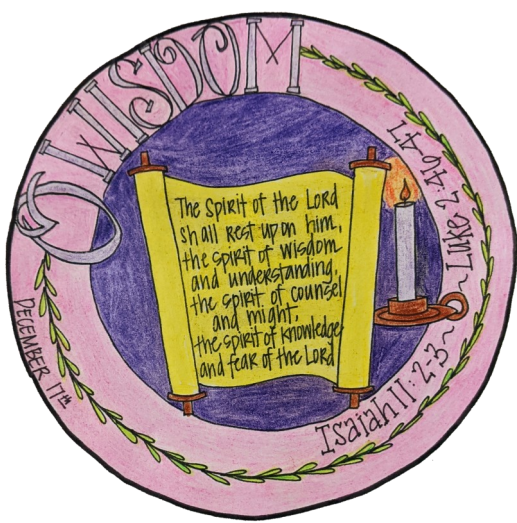 O WISDOM
The Spirit of the Lord
shall rest upon him,
the spirit of wisdom
and understanding,
the spirit of counsel
and might,
the spirit of knowledge
and fear of the Lord
Isaiah 11:2-3~ ~Luke 2:46,47
DECEMBER 17th